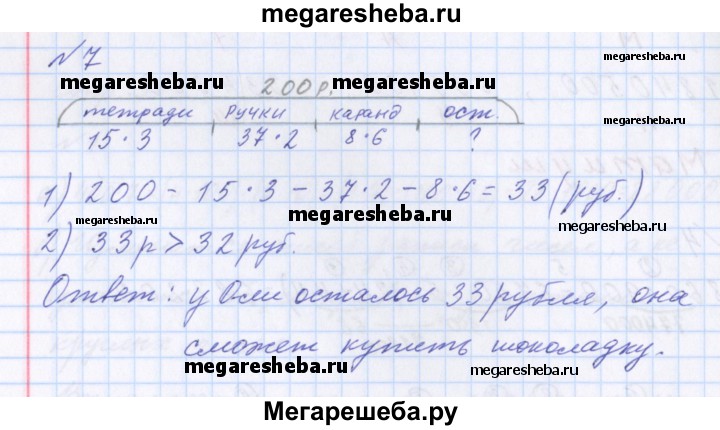 megaresheba.ru
№ 7
megaresheba.ru
megaresheba.ru
200р.
тетради ручки каранд ост.
megaresheba.ru
15·3 37·2 8·6 ?
megaresheba.ru
1) 200 - 15·3 - 37·2 - 8·6 = 33 (руб.)
megaresheba.ru
megaresheba.ru
2) 33р > 32 руб.
megaresheba.ru
Ответ: у Оли осталось 33 рубля, она
сможет купить шоколадку.
megaresheba.ru
megaresheba.ru
Мегарешеба.ру